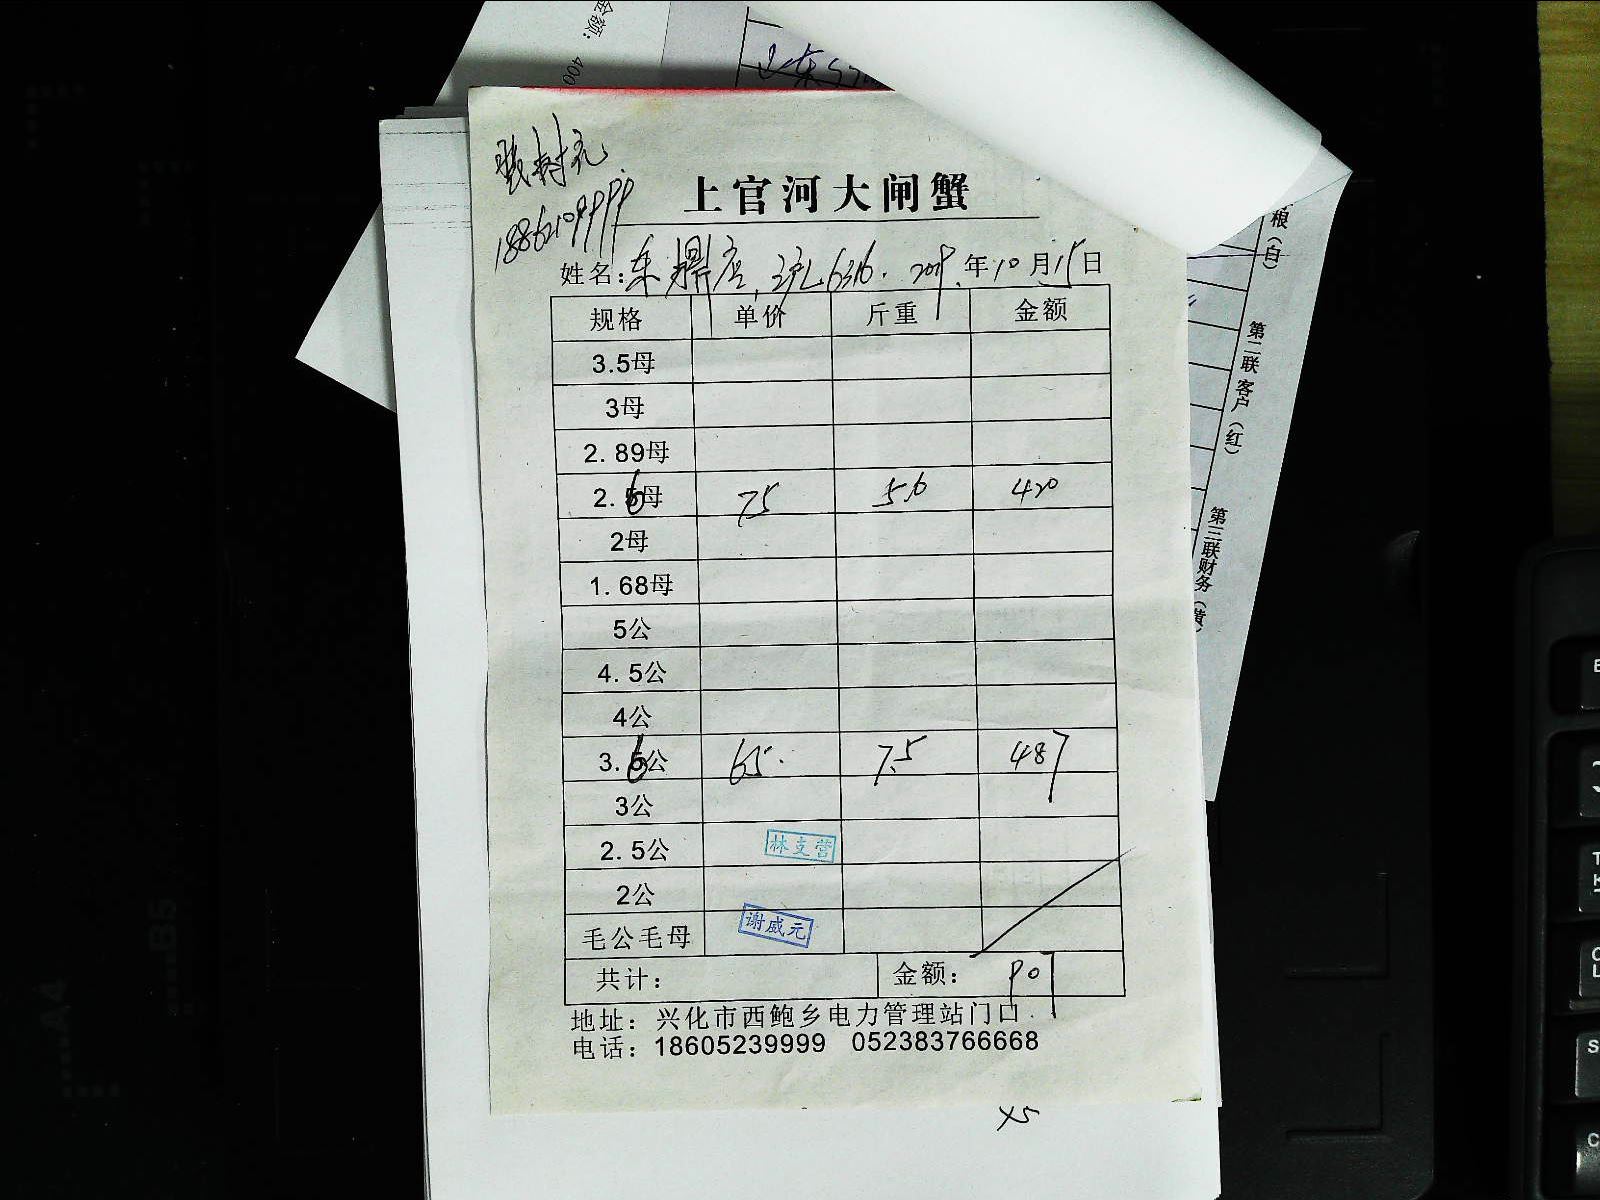 金额: 400
山东
18862109999
上官河大闸蟹
姓名: 东 店. 沪C 6316. 2019. 年 10 月 15 日
规格 单价 斤重 金额
3.5母
3母
2.89母
2.6母 75 5.6 420
2母
1.68母
5公
4.5公
4公
3.6公 65. 7.5 487
3公
2.5公 林支营
2公
毛公毛母 谢威元
共计: 金额: 907
地址: 兴化市西鲍乡电力管理站门口
电话: 18605239999 052383766668
X5
根（白）
第二联 客户（红）
第三联 财务（黄）